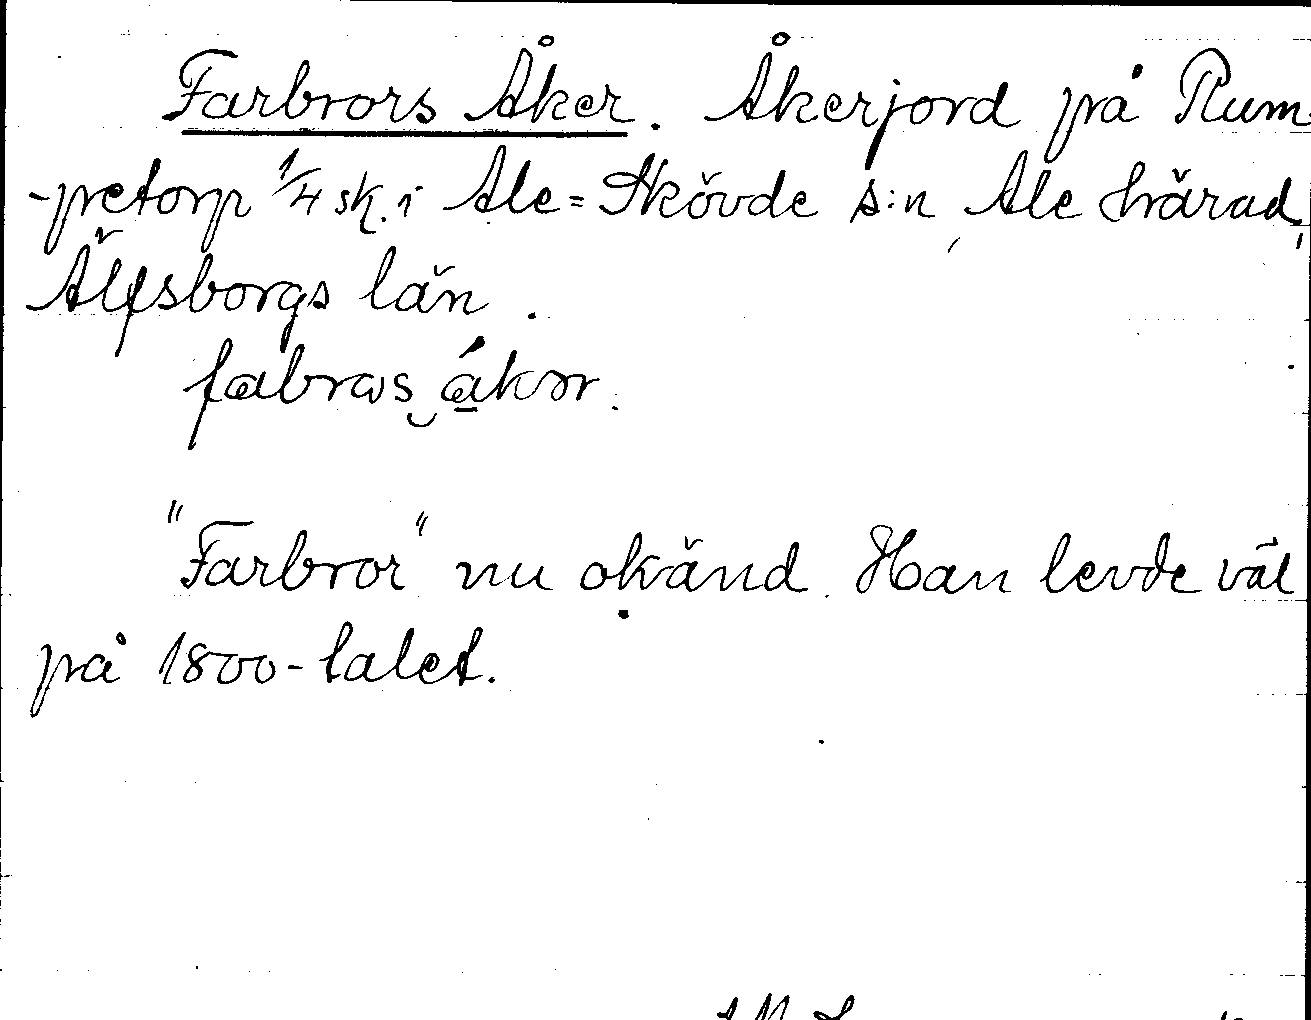 Farbrors Åker. Åkerjord på Rum-
-petorp 1/4 sk. i Ale=Skövde s:n, Ale härad,
Älfsborgs län.
fabras ákər.
"Farbror" nu okänd. Han levde väl
på 1800-talet.